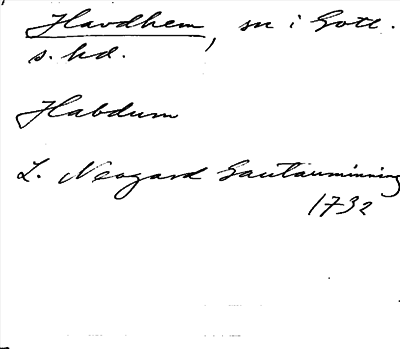 Havdhem, sn i Gotl.
s. hd.
Habdum
L. Neogard Gautauminning
1732